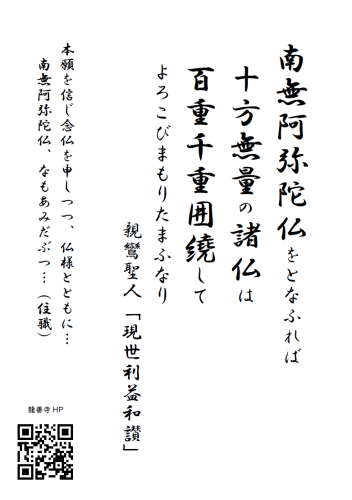 南無阿弥陀仏をとなふれば
十方無量の諸仏は
百重千重囲繞して
よろこびまもりたまふなり
親鸞聖人「現世利益和讃」
本願を信じ念仏を申しつつ、仏様とともに…
南無阿弥陀仏、なもあみだぶつ…（住職）
龍善寺 HP